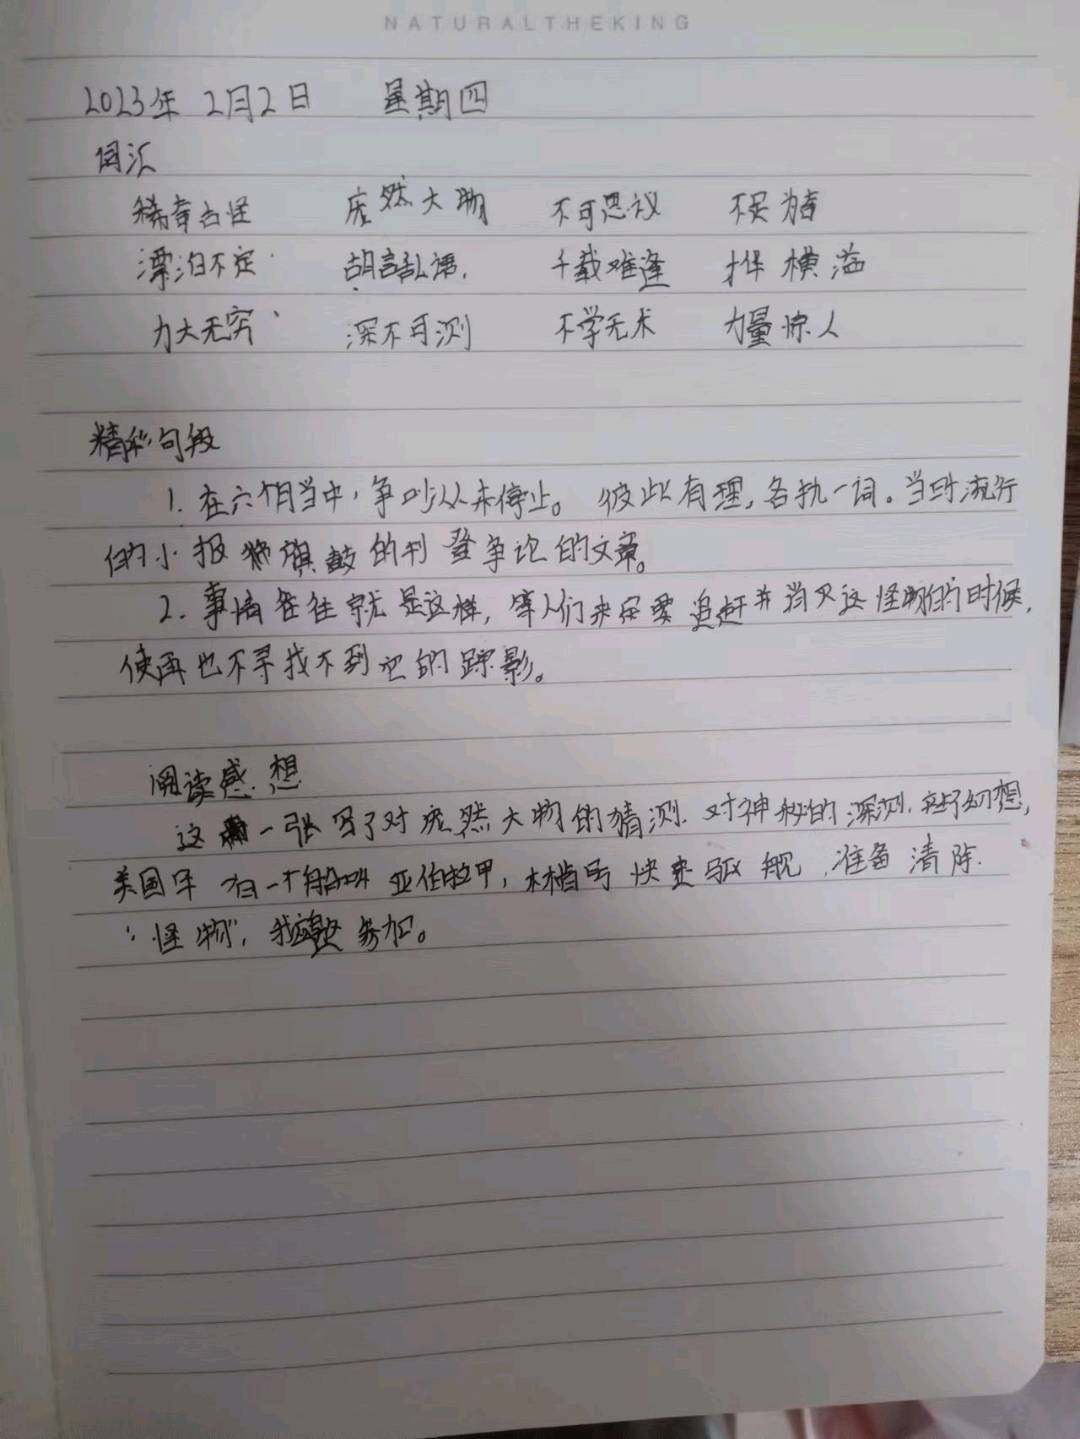 NATURALTHEKING
2023年 2月2日 星期四
词汇
稀奇古怪 庞然大物 不可思议 不足为奇
漂泊不定 胡言乱语. 千载难逢 才华横溢
力大无穷 深不可测 不学无术 力量惊人
精彩句段
1. 在六个月当中,争吵从未停止。彼此有理,各执一词。当时流行
的小报 旗鼓的刊登争论的文章。
2. 事情往往就是这样,等人们决定要追赶并消灭这怪物的时候,
便再也不寻找不到它的踪影。
阅读感想
这一张写了对庞然大物的猜测. 对神秘的深测. 幻想,
美国 有一个 亚伯拉 快 驱舰,准备清除.
“怪物”, 参加。